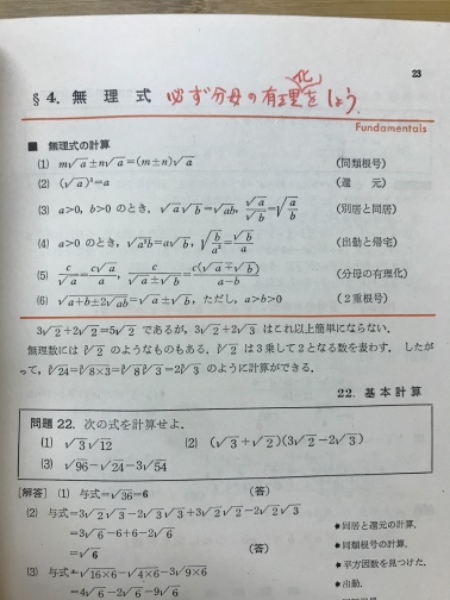 23
§4. 無理式 必ず分母の有理化をしよう
Fundamentals
■ 無理式の計算
(1) m√a±n√a=(m±n)√a (同類根号)
(2) (√a)²=a (還元)
(3) a>0, b>0 のとき, √a√b=√ab, √a/√b=√(a/b) (別居と同居)
(4) a>0 のとき, √a²b=a√b, √(b/a²)=√b/a (出動と帰宅)
(5) c/√a=c√a/a, c/(√a±√b)=c(√a∓√b)/(a-b) (分母の有理化)
(6) √(a+b±2√ab)=√a±√b, ただし, a>b>0 (2重根号)
3√2+2√2=5√2 であるが, 3√2+2√3 はこれ以上簡単にならない.
無理数には ∛2 のようなものもある. ∛2 は3乗して2となる数を表わす. したが
って, ∛24=∛8×3=∛8∛3=2∛3 のように計算ができる.
22. 基本計算
問題 22. 次の式を計算せよ.
(1) √3√12 (2) (√3+√2)(3√2-2√3)
(3) √96-√24-3√54
[解答] (1) 与式=√36=6 (答)
(2) 与式=3√2√3-2√3√3+3√2√2-2√2√3
=3√6-6+6-2√6 ●同居と還元の計算.
=√6 (答) ●同類根号の計算.
●平方因数を見つけた.
(3) 与式=√16×6-√4×6-3√9×6 ●出動.
=4√6-2√6-9√6